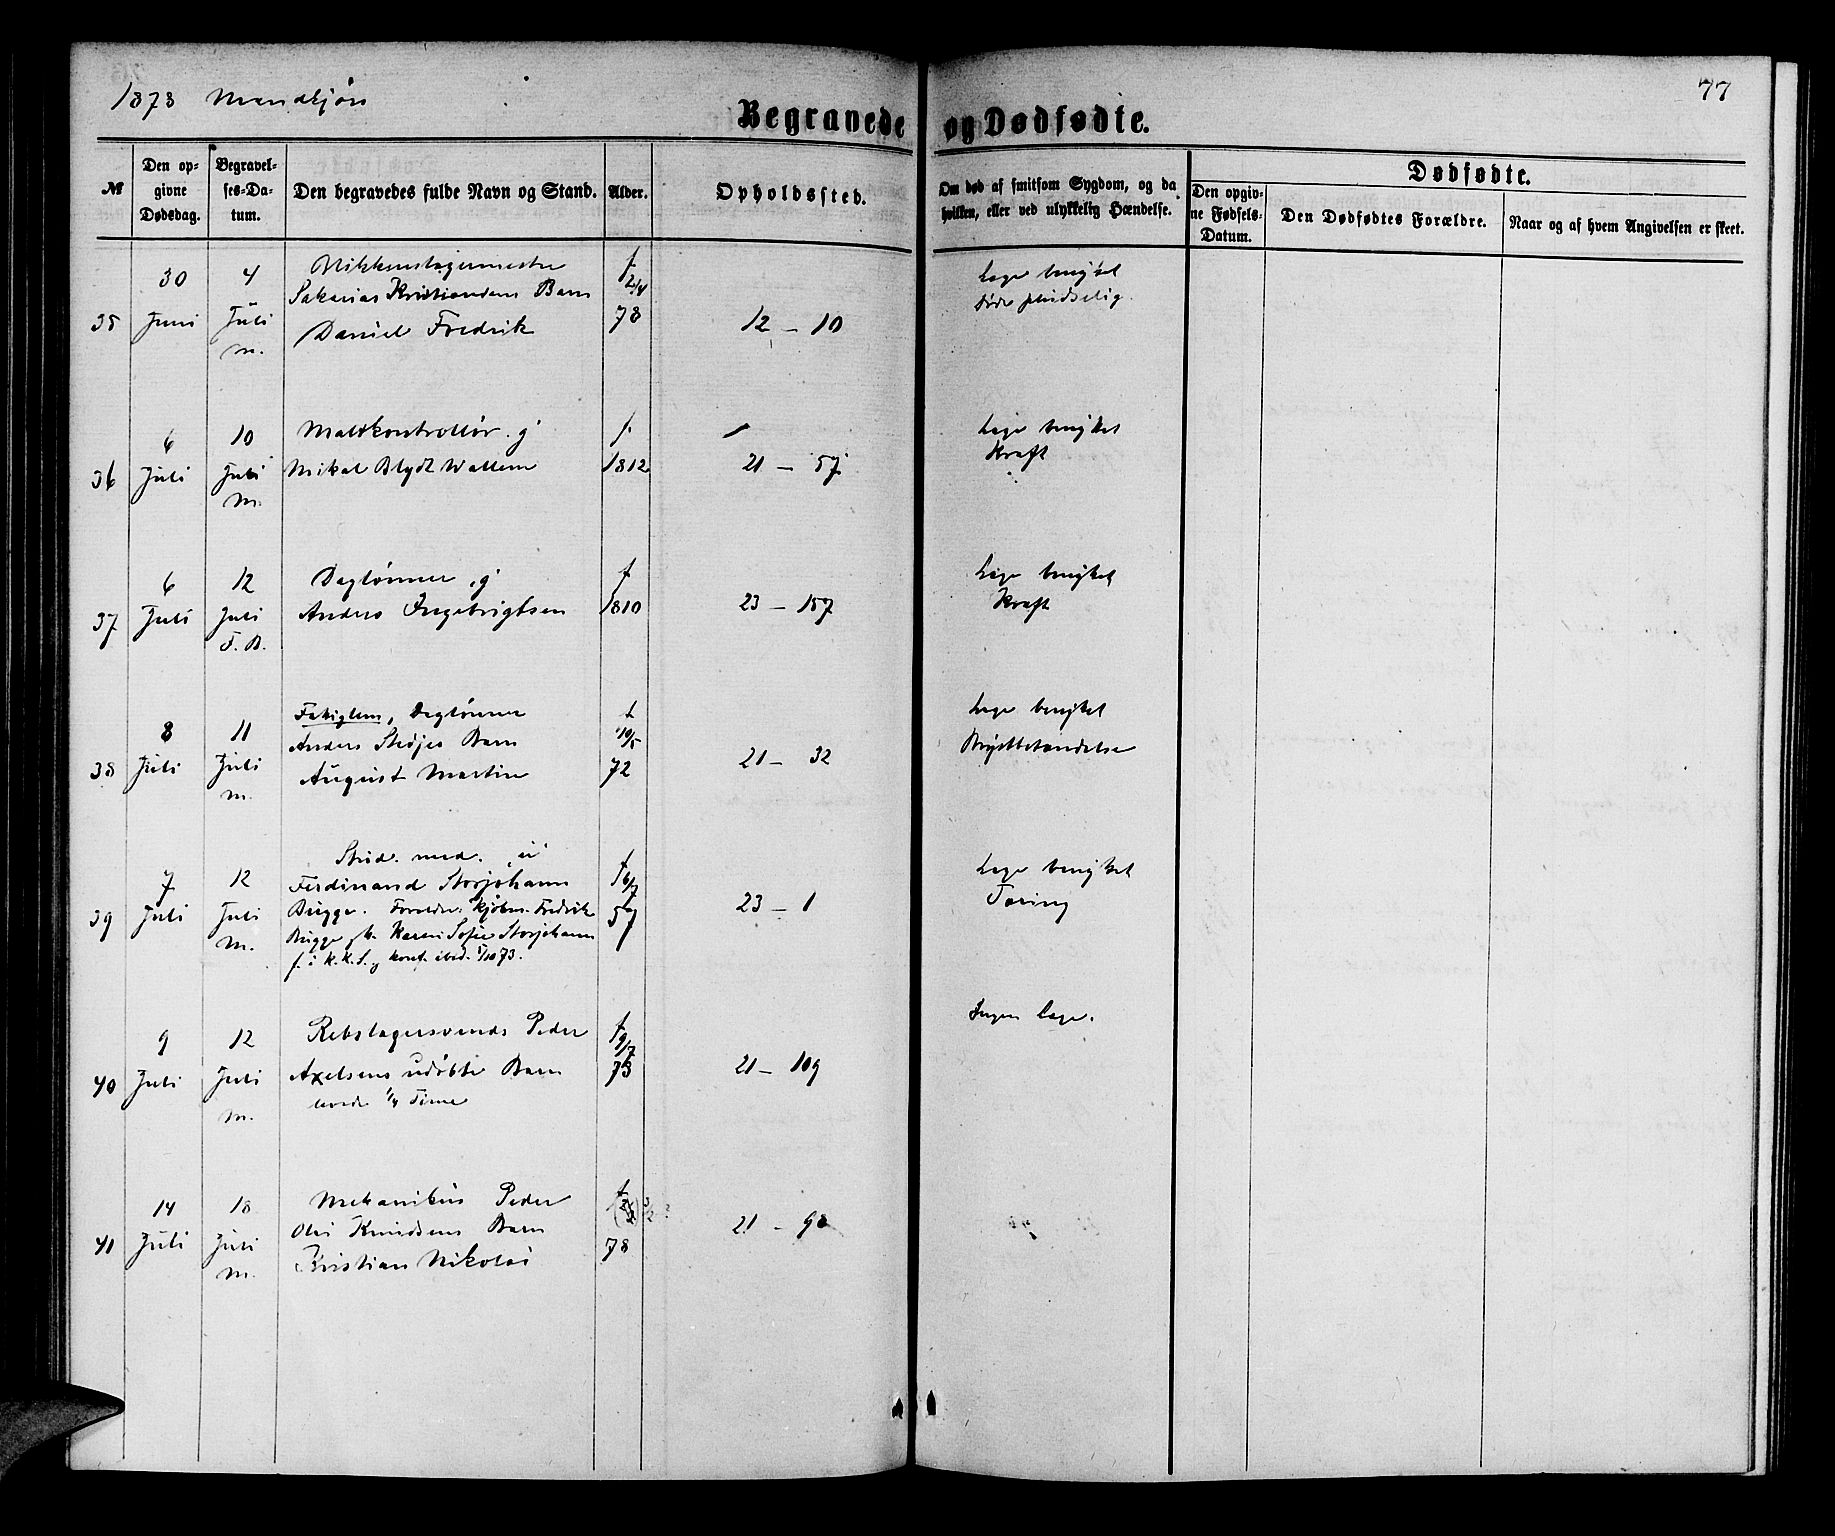 1878 Mandkjøn
77
Begravede og Dødfødte.
№
Den opgivne Dødsdag.
Begravelses-Datum.
Den begravedes fulde Navn og Stand.
Alder.
Opholdssted.
Om død af smitsom Sygdom, og da hvilken, eller ved ulykkelig Hændelse.
Dødfødte.
Den opgivne Fødsels-Datum.
Den Dødfødtes Forældre.
Naar og af hvem Angivelsen er skeet.
35
30 Juni
4 Juli m.
Blikkenslagermester
Sakarias Kristiansens Barn
Daniel Fredrik
f. 2/4 78
12 – 10
Læge benyttet
døde pludselig.
36
6 Juli
10 Juli m.
Maltkontrollør. g
Mikal Blydt Wallem
f. 1812
21 – 57
Læge benyttet
Kræft
37
6 Juli
12 Juli F. B.
Daglønner, g
Anders Ingebrigtsen
f 1810
23 – 157
Læge benyttet
Kræft
38
8 Juli
11 Juli m.
Fatiglem, Daglønner
Anders Barn
August Martin
f 19/5 72
21 – 32
Læge benyttet
Brystbetændelse
39
7 Juli
12 Juli m.
Stud. med. u
Ferdinand Storjohann
Bugge. Forældre: Kjøbm. Fredrik
Bugge, h. Karen Sofie Storjohann
f. i K.K.S. g konf. ibid. 5/10 73.
f 16/7 57
23 – 1
Læge benyttet
Tæring
40
9 Juli
12 Juli m.
Rebslagersvends Peder
Axelsens udøbte Barn
levede 1/4 Time
f 9/7 78
21 – 109
Ingen Læge.
41
14 Juli
18 Juli m.
Mekanikus Peder
Oles Knudsens Barn
Kristian Nikolai
f 3/2 ? 78
21 – 98